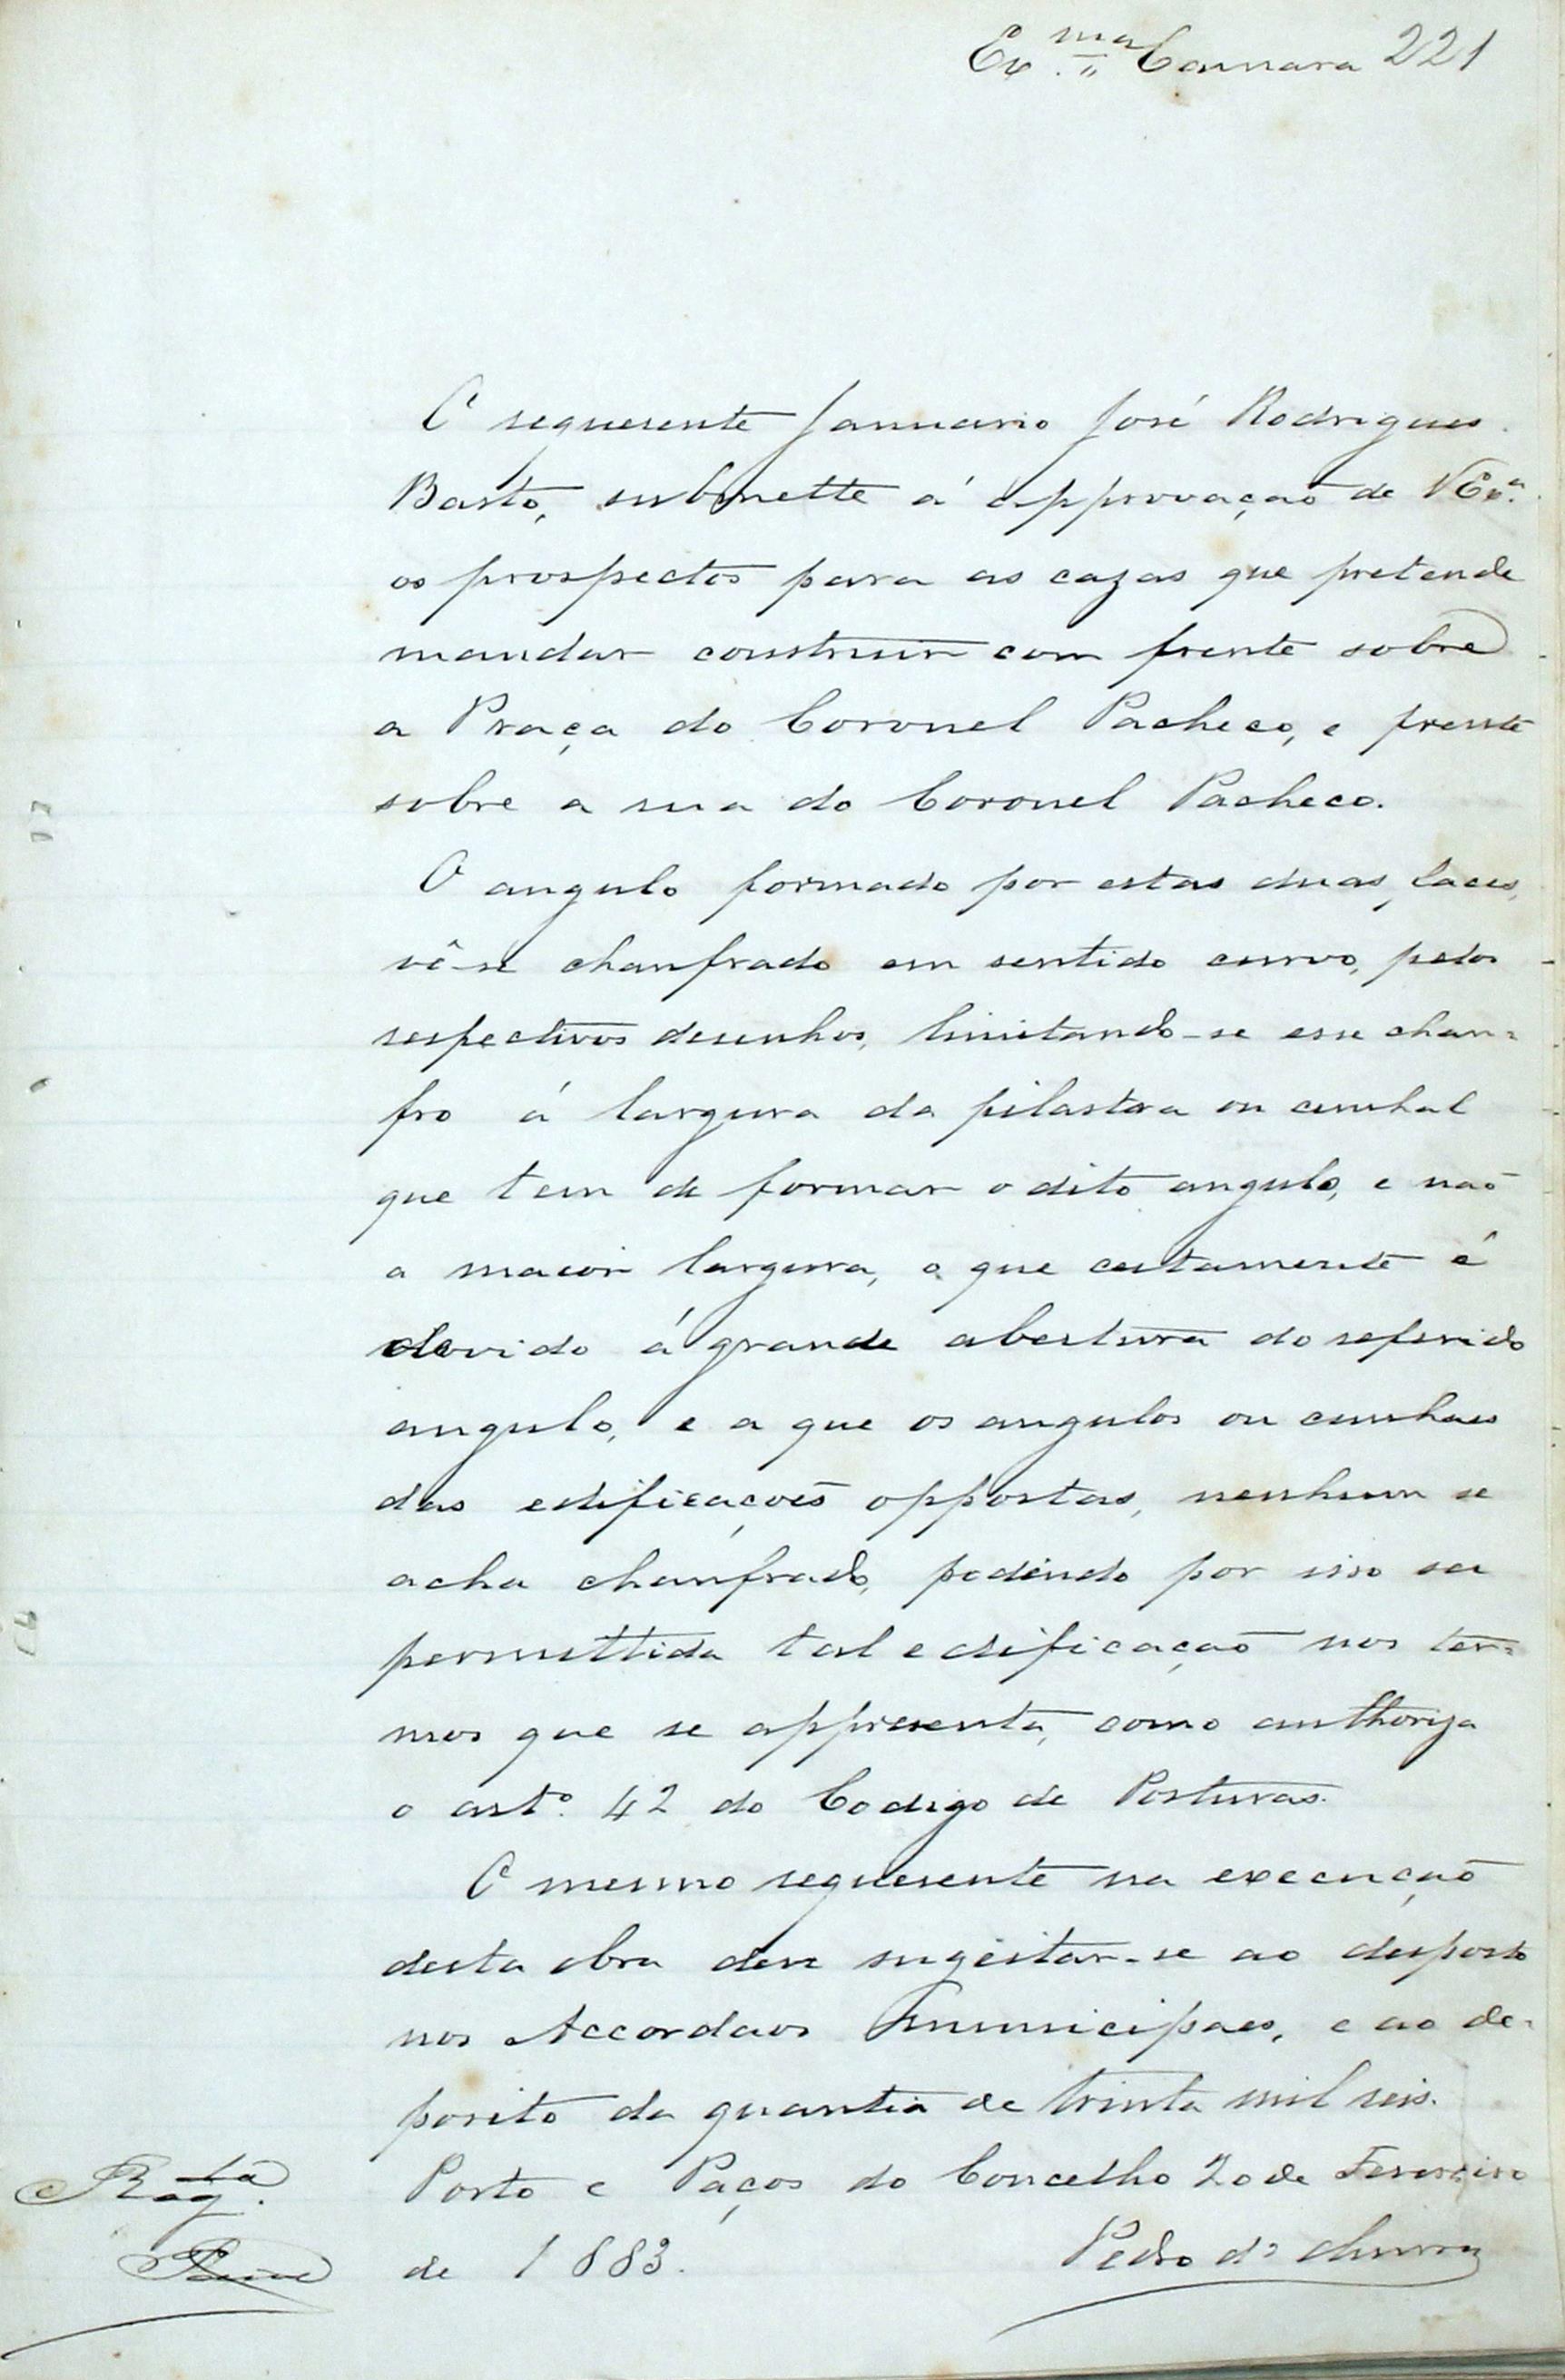 Ex.ma Camara 221
O requerente Januario José Rodrigues
Basto, submette á approvação de VExª.
os prospectos para as cazas que pretende
mandar construir com frente sobre
a Praça do Coronel Pacheco, e frente
sobre a rua do Coronel Pacheco.
O angulo formado por estas duas faces,
vê-se chanfrado em sentido curvo, pelos
respectivos desenhos, limitando-se esse chan=
fro á largura da pilastra ou cunhal
que tem de formar o dito angulo, e não
a maior largura, o que certamente é
devido á grande abertura do referido
angulo, e a que os angulos ou cunhaes
das edificações oppostas, nenhum se
acha chanfrado, podendo por isso ser
permittida tal edificação nos ter=
mos que se appresenta, como authoriza
o artº. 42 do Codigo de Posturas.
O mesmo requerente na execução
desta obra deve sugeitar-se ao desposto
nos Accordaos municipaes, e ao de-
posito da quantia de trinta mil reis.
Porto e Paços do Concelho 20 de Fevereiro
de 1883.
Pedro d'
Reg.ta